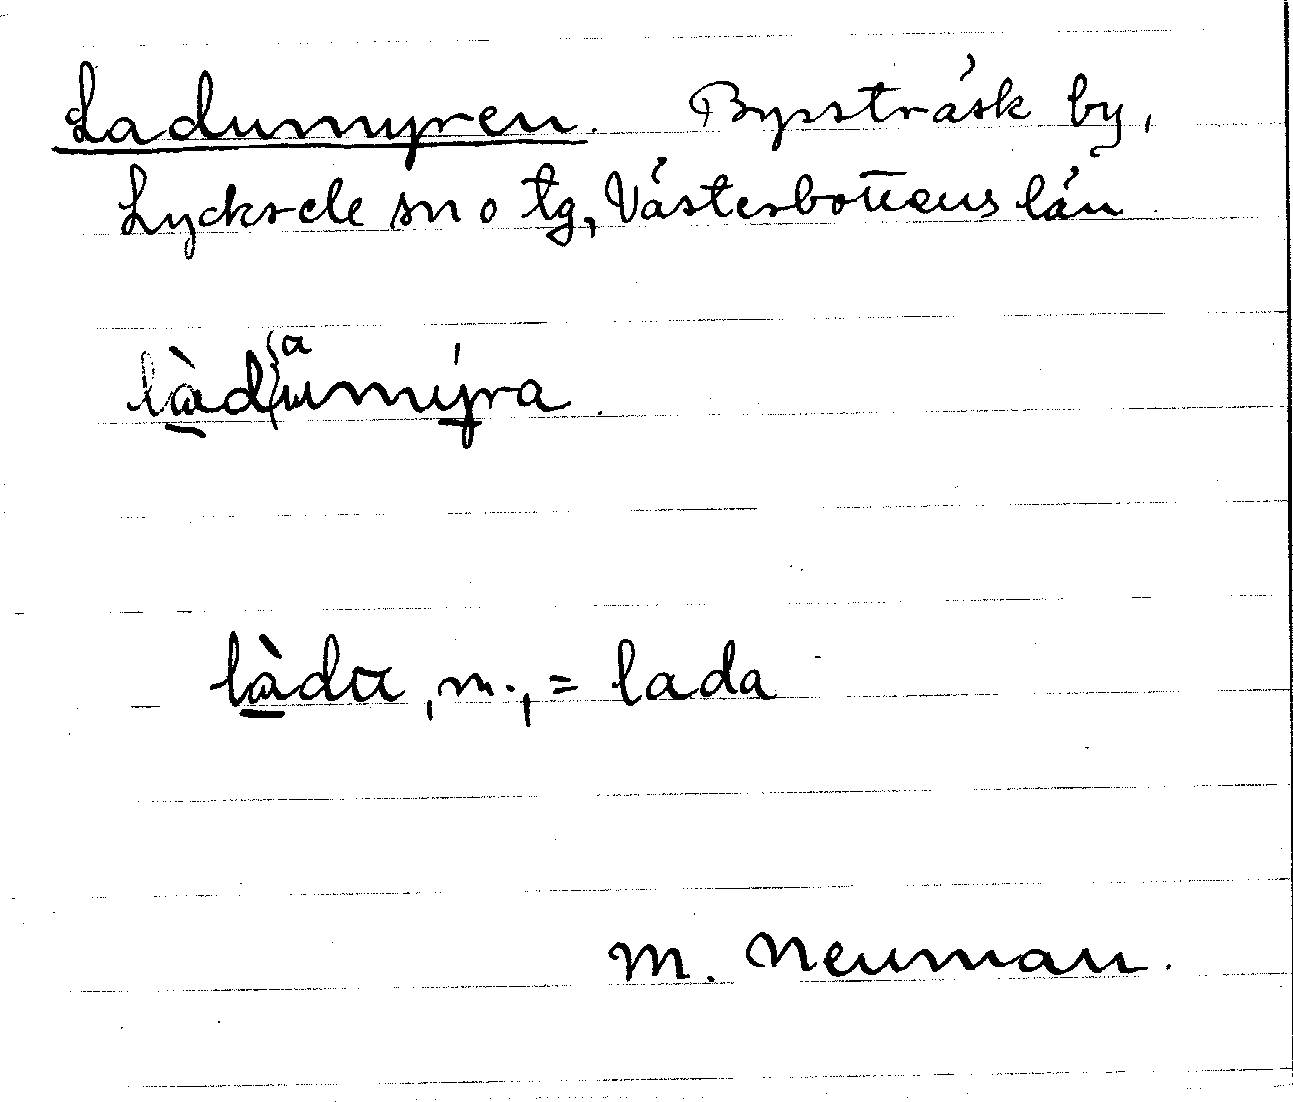 Ladumyren. Bysträsk by,
Lycksele sn o tg, Västerbottens län
làd{ɑ/u}mýra
làdɑ, m., = lada
M. Neuman.